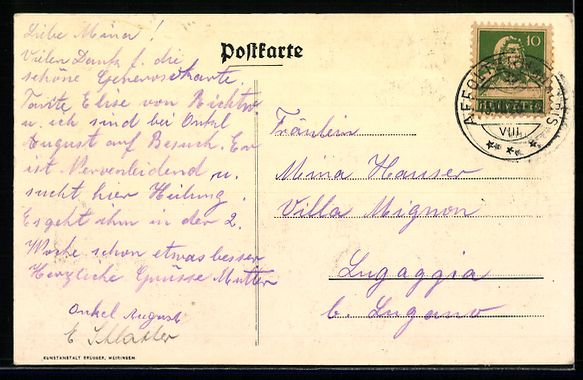 Postkarte
Liebe Mina!
Vielen Dank f. die
schöne Generoskarte.
Tante Elise von Richtw
u. ich sind bei Onkel
August auf Besuch. Er
ist Nervenleidend u.
sucht hier Heilung.
Es geht ihm in der 2.
Woche schon etwas besser
Herzliche Grüsse Mutter
Onkel August
E Schlatter
KUNSTANSTALT BRÜGGER, MEIRINGEN.
10
HELVETIA
AFFOLTERN
VIII
Fräulein
Mina Hauser
Villa Mignon
Lugaggia
b. Lugano